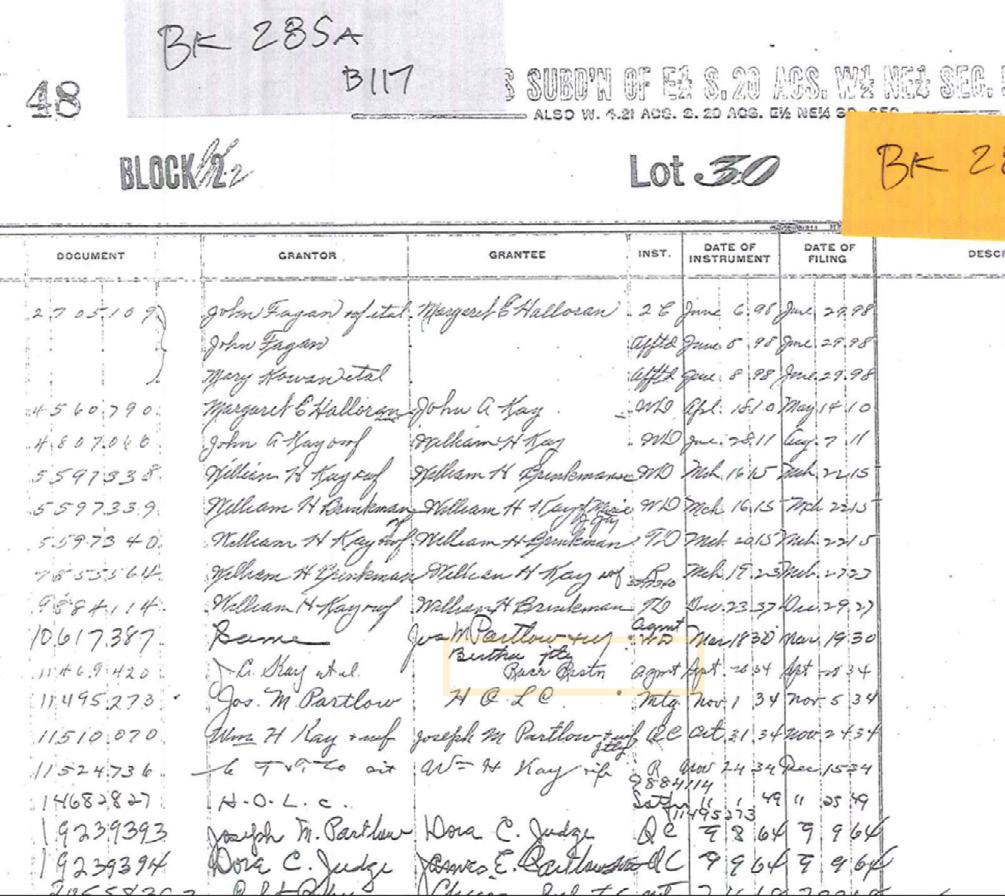 BK 285A
B117
48
SUBD'N OF E½ S. 20 ACS. W½ NE¼ SEC.
ALSO W. 4.21 ACS. S. 20 ACS. E½ NE¼ 30
BLOCK 22 Lot 30
BK 28
DOCUMENT GRANTOR GRANTEE INST. DATE OF INSTRUMENT DATE OF FILING DESC
2705109 John Fagan et al Margaret E Halloran 2 C June 6.98 June 29.98
John Fagan Affid June 8 98 June 29.98
Mary et al Affid June 8 98 June 29.98
4560790 Margaret E Halloran John A Kay WD Apl. 15 10 May 14 10
4807066 John A Kay & wf William H Kay WD 28 11 Aug. 7 11
5597338 William H Kay & wf William H Brinkman WD Mch. 16 15 Mch. 22 15
5597339 William H Brinkman William H Kay WD Mch 16 15 Mch 22 15
5597340 William H Kay & wf William H Brinkman TD Mch 20 15 Mch 22 15
William H Brinkman William H Kay & wf R Mch. 19
9884114 William H Kay & wf William H Brinkman TD Dec. 23 27 Dec. 29 27
10617387 Same Jos M Partlow Agmt WD Mar 18 30 Mar. 19 30
Bertha
11469420 Kay et al. Agmt Sept 34 Sept 34
11495273 Jos. M Partlow H O L C Mtg Nov. 1 34 Nov. 5 34
11510070 Wm H Kay & wf Joseph M Partlow & wf jtly QC Oct. 31 34 Nov 24 34
11524736 C T & T Co Wm H Kay R Nov 24 34 Dec 15 34
9884114
14682827 H.O.L.C. " 49 " 25 49
11495273
19239393 Joseph M. Partlow Dora C. Judge QC 9 8 64 9 9 64
19239394 Dora C. Judge James E. Partlow QC 9 9 64 9 9 64